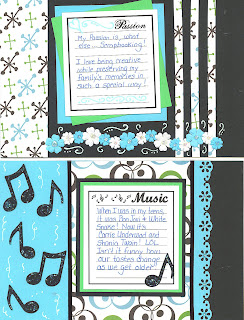 Passion
My Passion is, what
else... Scrapbooking!
I love being creative
while preserving my
family's memories in
such a special way!
Music
When I was in my teens,
it was Bon Jovi & White
Snake! Now it's
Carrie Underwood and
Shania Twain! LOL
Isn't it funny how
our tastes change
as we get older?